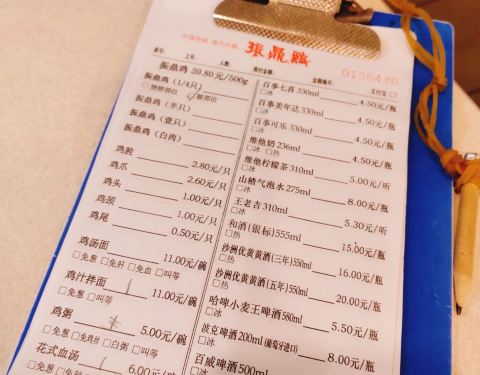 中国传统 现代风貌 振鼎鸡
0156430
桌号: 工号: 人数: 预付金额: 余额编号: 支付宝□
振鼎鸡 39.80元/500g
振鼎鸡(1/4只)
□翅膀部位 □腿部位
振鼎鸡(半只)
振鼎鸡(壹只)
振鼎鸡(白肉)
鸡胗 2.80元/只
鸡爪 2.60元/只
鸡头 1.00元/只
鸡颈 1.00元/只
鸡尾 0.50元/只
鸡汤面 11.00元/碗
□免葱 □免肝 □免血 □叫等
鸡汁拌面 11.00元/碗
□免葱 □叫等
鸡粥 5.00元/碗
□免葱 □免鸡丝 □白粥 □叫等
花式血汤 6.00元/碗
□免葱
百事七喜 330ml 4.50元/瓶
□冰
百事美年达 330ml 4.50元/瓶
□冰
百事可乐 330ml 4.50元/瓶
□冰
维他奶 236ml 4.50元/瓶
□冰 □热
维他柠檬茶 310ml 5.00元/听
□冰
山楂气泡水 275ml 8.00元/瓶
□冰
王老吉 310ml 5.30元/听
□冰
和酒(银标)555ml 15.00元/瓶
□热
沙洲优黄黄酒(三年)550ml 16.00元/瓶
□热
沙洲优黄黄酒(五年)550ml 20.00元/瓶
□热
哈啤小麦王啤酒 580ml 5.50元/瓶
□冰
波克啤酒 200ml(葡萄牙进口) 8.00元/瓶
□冰
百威啤酒 500ml